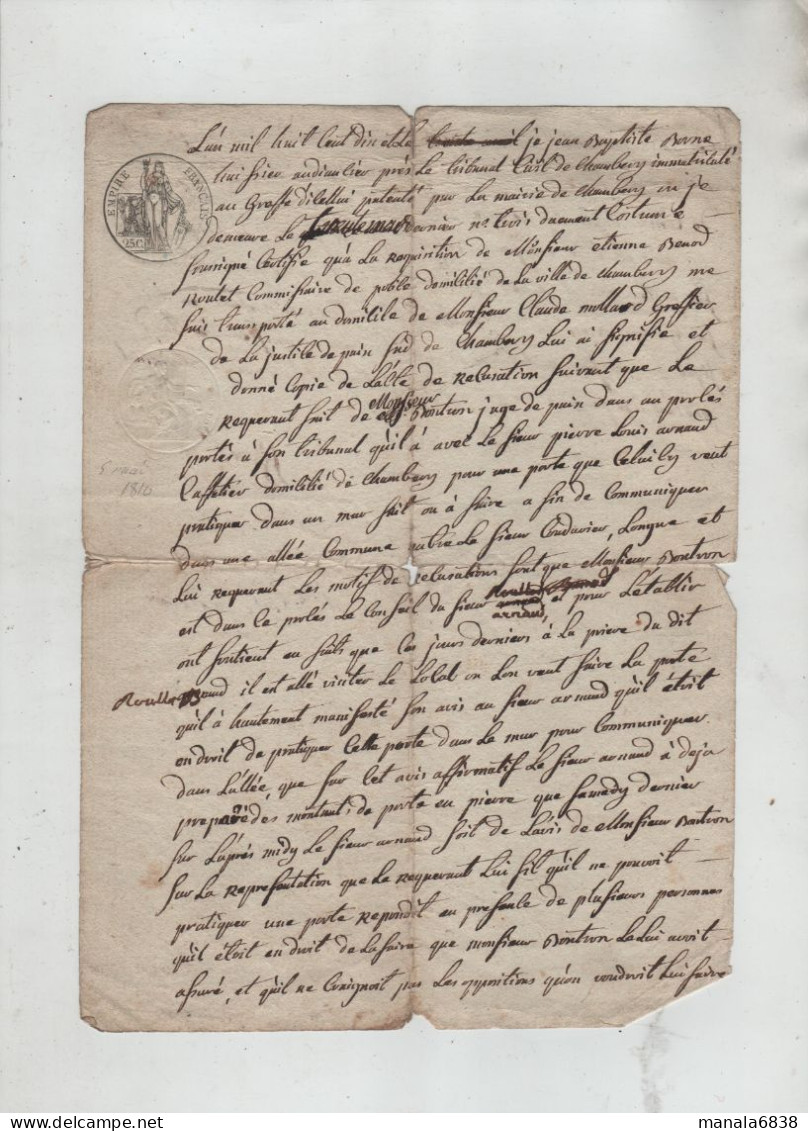 L'an mil huit cent dix et le je jean Baptiste Borne
huissier audiancier près Le tribunal Civil de Chambery immatriculé
au Greffe dicellui patenté par La mairie de Chambery ou je
demeure Le dernier n.° trois duement Costumé
Soussigné Certifie qu'à La Requisition de Monsieur etienne Benod
Roulet Commissaire de police domicilié de La ville de Chambery me
Suis transporté au domicile de Monsieur Claude mollard Greffier
de La justice de paix Sud de Chambery Lui ai Signifié et
donné Copie de L'acte de Recusation Suivant que Le
Requerant fait de Monsieur Bontron juge de paix dans au procès
portés à Son tribunal qu'il à avec Le Sieur pierre Louis arnaud
Caffetier domicilié de Chambery pour une porte que Celui Cy veut
pratiquer dans un mur fait ou à faire a fin de Communiquer
dans une allée Commune entre Le Sieur Couduvier, Longue et
Lui Requerant Les motif de recusations Sont que Monsieur Bontron
est dans Ce procès Le Conseil du Sieur arnaud, et pour L'établir
ont Soutient en faits que Ces jours derniers à La priere du dit
Roullet il est allé visiter Le Local ou L'on veut faire La porte
qu'il à hautement manifesté Son avis au Sieur arnaud qu'il étoit
en droit de pratiquer Cette porte dans Le mur pour Communiquer
dans L'allée, que Sur Cet avis affirmatif Le Sieur arnaud à deja
preparé des montants de porte en pierre que Samedy dernier
Sur L'après midy Le Sieur arnaud fort de L'avis de Monsieur Bontron
Sur La Representation que Le Requerant Lui fit qu'il ne pouvoit
pratiquer une porte Repondit en presence de plusieurs personnes
qu'il étoit en droit de La faire que monsieur Bontron Le Lui avoit
assuré, et qu'il ne Craignoit pas Les oppositions qu'on voudroit Lui faire
EMPIRE FRANÇAIS
25 C
5 mai
1810
manala6838